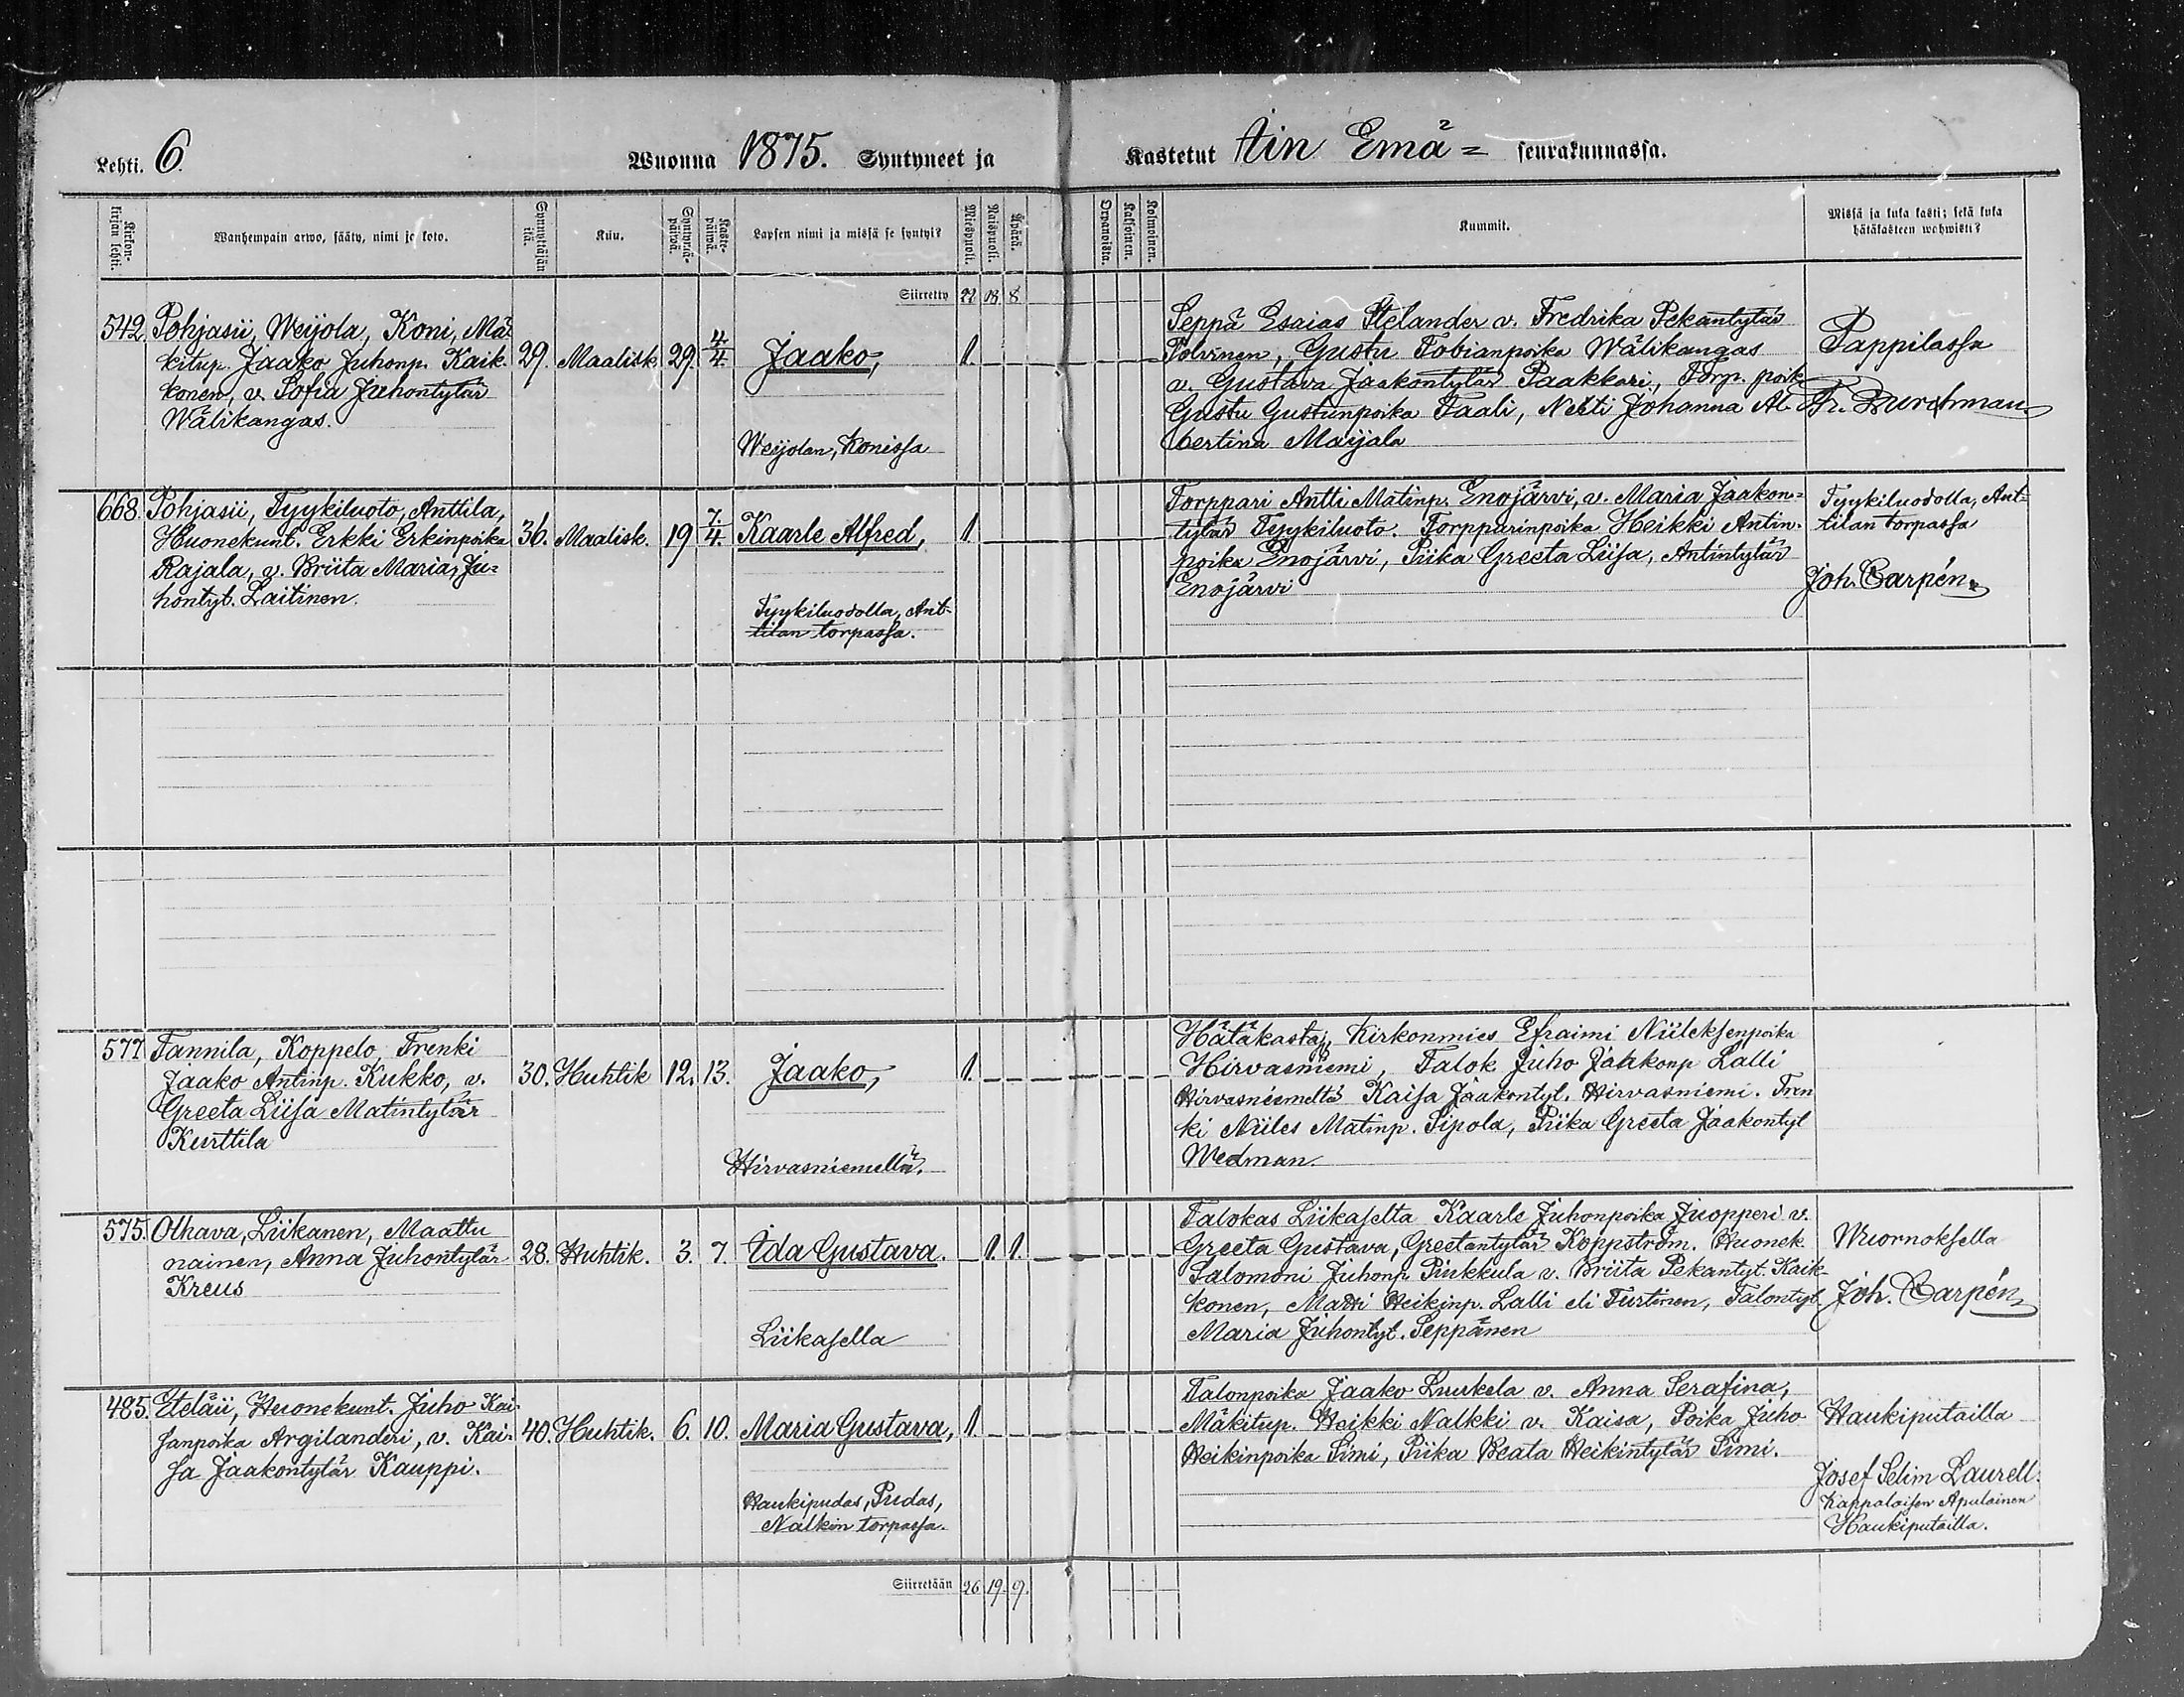 Lehti. 6. Wuonna 1875. Syntyneet ja Kastetut Iin Emä= seurakunnassa.
Kirkonkirjan lehti.
Wanhempain arwo, sääty, nimi ja koto.
Synnyttäjän ikä.
Kuu.
Syntymäpäivä.
Kaste-päivä.
Lapsen nimi ja missä se syntyi?
Miespuoli.
Naispuoli.
Äpärä.
Orwanoista.
Kaksoinen.
Kolmoinen.
Kummit.
Missä ja kuka kasti; sekä kuka
hätäkasteen wahwisti?
Siirretty 22 18 8
542. Pohjasii, Weijola, Koni, Mä-
kitup. Jaako Juhonp. Kaik-
konen, v. Sofia Juhontytär
Wälikangas.
29. Maalisk. 29. 4/4.
Jaako,
Weijolan, Konissa
1.
Seppä Esaias Stelander v. Fredrika Pekantytär
Polvinen, Gustu Tobianpoika Wälikangas
v. Gustava Jaakontytär Paakkari, Torp. poik
Gustu Gustunpoika Taali, Neiti Johanna Al-
bertina Maijala
Pappilassa
Fr. Burchman
668. Pohjasii, Tyykiluoto, Anttila,
Huonekunt. Erkki Erkinpoika
Rajala, v. Briita Maria Ju-
hontyt. Laitinen.
36. Maalisk. 19 7/4.
Kaarle Alfred,
Tyykiluodolla, Ant-
tilan torpassa.
1.
Torppari Antti Matinp. Enojärvi, v. Maria Jaakon-
tytär Tyykiluoto. Torpparinpoika Heikki Antin-
poika Enojärvi, Piika Greeta Liisa, Antintytär
Enojärvi
Tyykiluodolla, Ant-
tilan torpassa
Joh. Carpén.
577. Tannila, Koppelo, Trenki
Jaako Antinp. Kukko, v.
Greeta Liisa Matintytär
Kurttila
30. Huhtik 12. 13.
Jaako,
Hirvasniemellä.
1.
Hätäkastaj. Kirkonmies Efraimi Niileksenpoika
Hirvasniemi, Talok. Juho Jaakonp Lalli
Hirvasniemeltä Kaisa Jaakontyt. Hirvasniemi. Tren
ki Niiles Matinp. Sipola, Piika Greeta Jaakontyt
Wedman.
575. Olhava, Liikanen, Maattu
nainen, Anna Juhontytär
Kreus
28. Huhtik. 3. 7.
Ida Gustava.
Liikasella
1. 1.
Talokas Liikaselta Kaarle Juhonpoika Juopperi v.
Greeta Gustava, Greetantytär Koppström. Huonek.
Salomoni Juhonp. Pinkkula v. Briita Pekantyt. Kaik-
konen, Matti Heikinp. Lalli eli Turtinen, Talontyt
Maria Juhontyt. Seppänen
Wuornoksella
Joh. Carpén
485. Eteläii, Huonekunt. Juho Kai-
sanpoika Argilanderi, v. Kai-
sa Jaakontytär Kauppi.
40. Huhtik. 6. 10.
Maria Gustava,
Haukipudas, Pudas,
Nalkin torpassa.
1.
Talonpoika Jaako Luukela v. Anna Serafina,
Mäkitup. Heikki Nalkki v. Kaisa, Poika Juho
Heikinpoika Simi, Piika Beata Heikintytär Simi.
Haukiputailla
Josef Selim Laurell.
Kappalaisen Apulainen
Haukiputailla.
Siirretään 26. 19. 9.